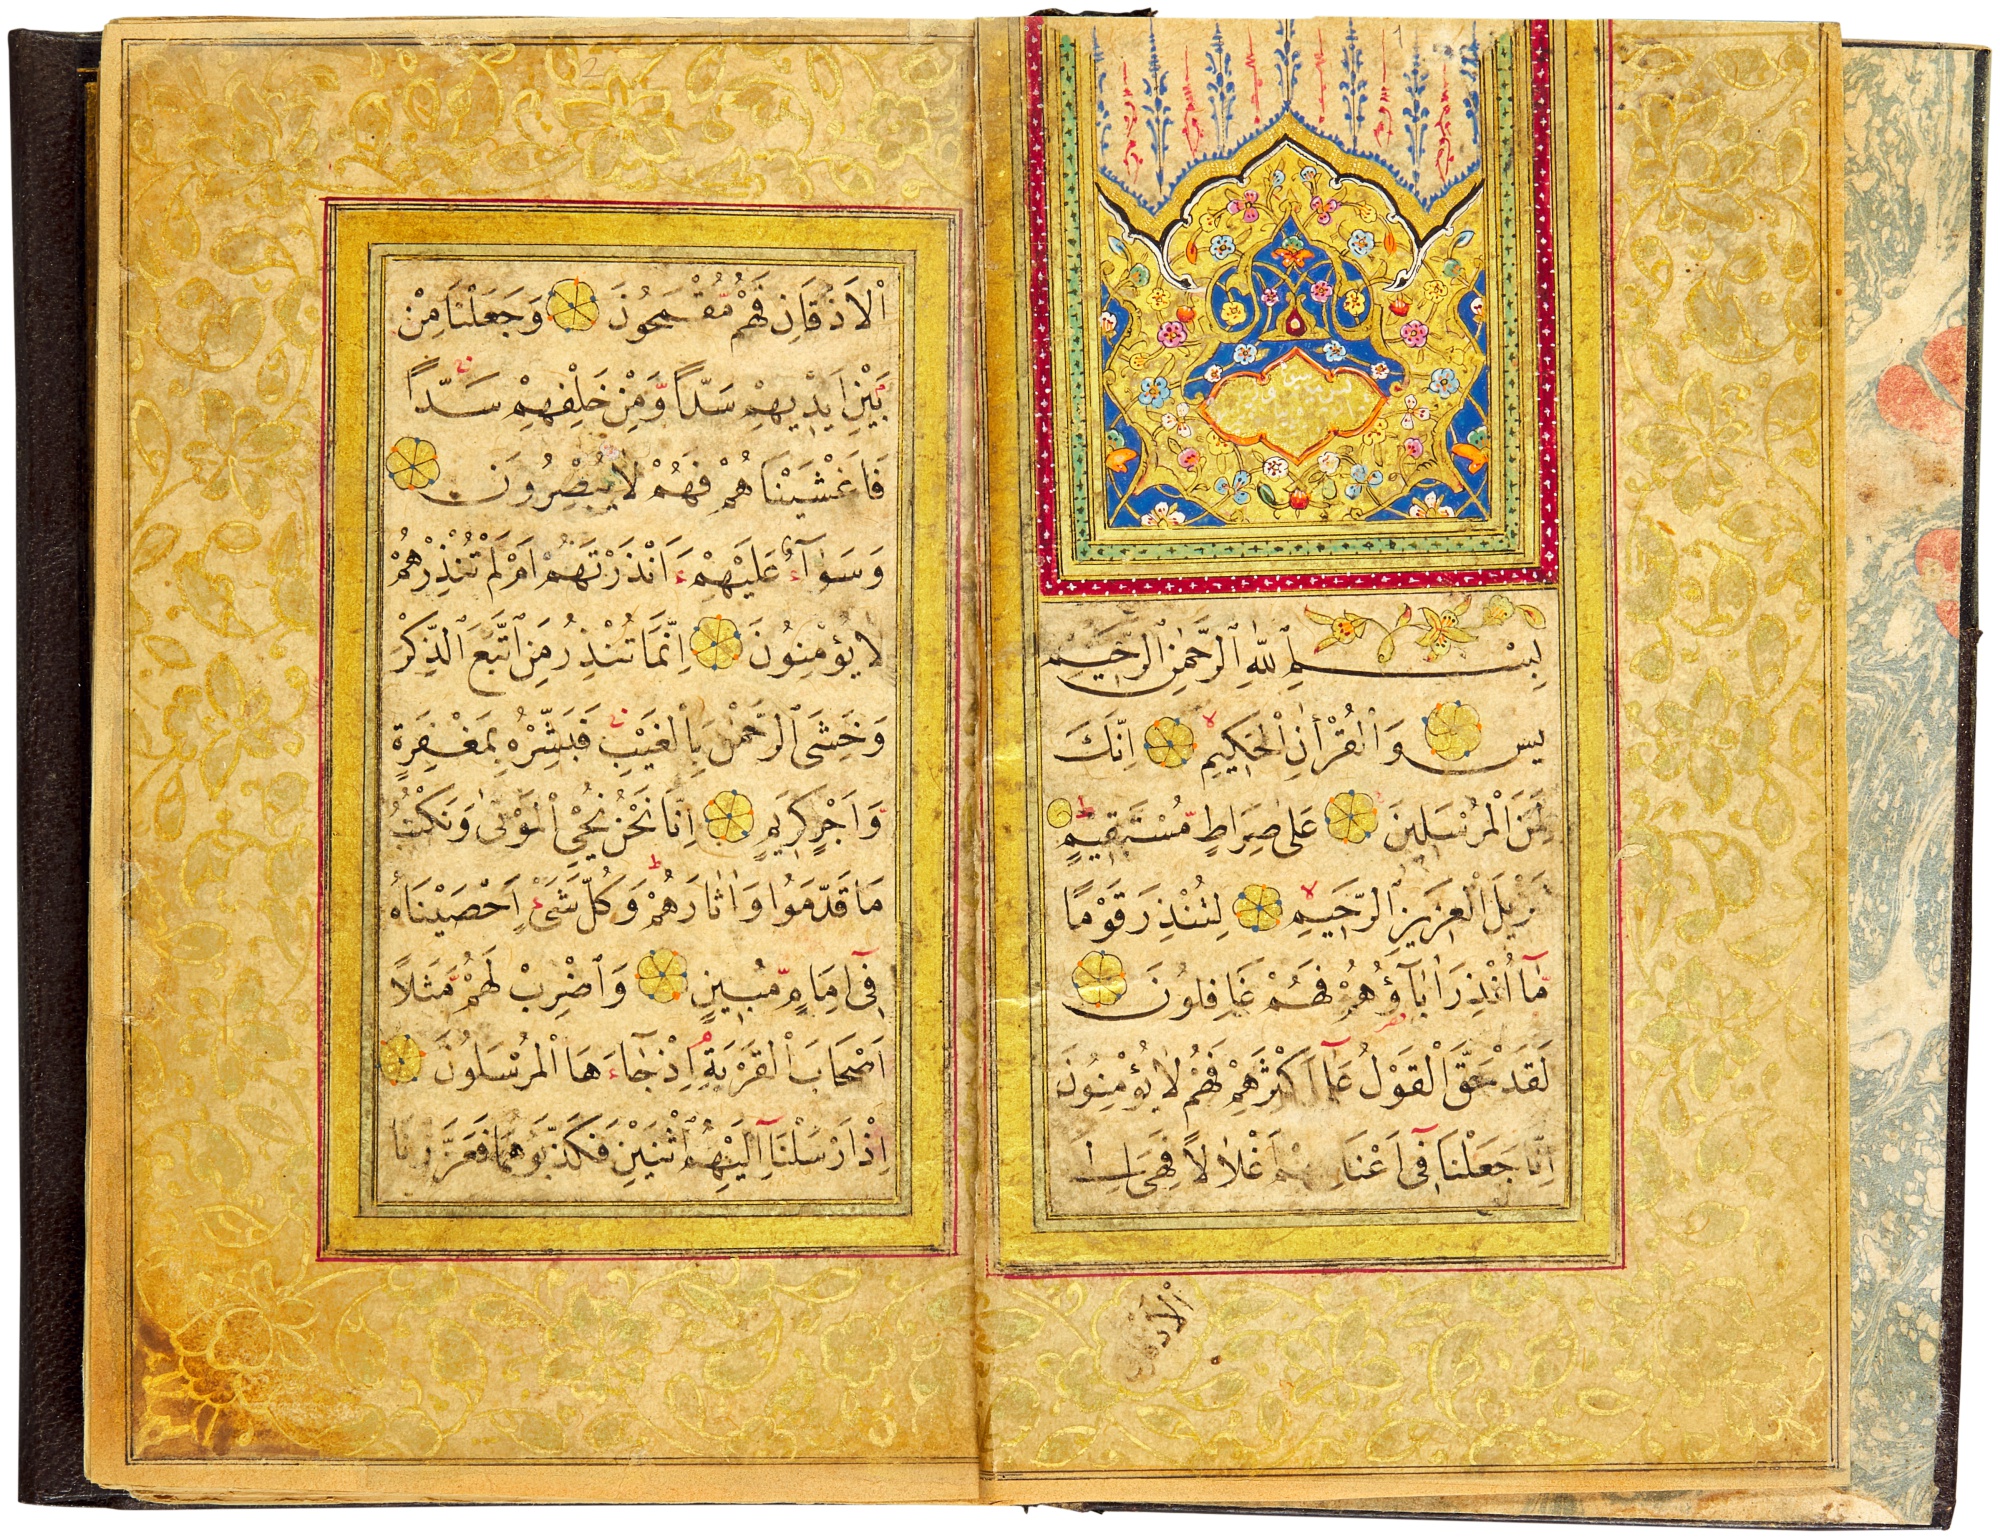 بِسْمِ اللهِ الرَّحْمٰنِ الرَّحِيمِ
يس وَالْقُرْاٰنِ الْحَكِيمِ اِنَّكَ
لَمِنَ الْمُرْسَلِينَ عَلٰى صِرَاطٍ مُسْتَقِيمٍ
تَنْزِيلَ الْعَزِيزِ الرَّحِيمِ لِتُنْذِرَ قَوْمًا
مَّآ اُنْذِرَ اٰبَآؤُهُمْ فَهُمْ غَافِلُونَ
لَقَدْ حَقَّ الْقَوْلُ عَلٰٓى اَكْثَرِهِمْ فَهُمْ لَا يُؤْمِنُونَ
اِنَّا جَعَلْنَا فِٓى اَعْنَاقِهِمْ اَغْلَالًا فَهِىَ اِلَى
الْاَذْقَانِ
الْاَذْقَانِ فَهُمْ مُّقْمَحُونَ وَجَعَلْنَا مِنْ
بَيْنِ اَيْدِيهِمْ سَدًّا وَّمِنْ خَلْفِهِمْ سَدًّا
فَاَغْشَيْنَاهُمْ فَهُمْ لَا يُبْصِرُونَ
وَسَوَآءٌ عَلَيْهِمْ ءَاَنْذَرْتَهُمْ اَمْ لَمْ تُنْذِرْهُمْ
لَا يُؤْمِنُونَ اِنَّمَا تُنْذِرُ مَنِ اتَّبَعَ الذِّكْرَ
وَخَشِىَ الرَّحْمٰنَ بِالْغَيْبِ فَبَشِّرْهُ بِمَغْفِرَةٍ
وَّاَجْرٍ كَرِيمٍ اِنَّا نَحْنُ نُحْىِ الْمَوْتٰى وَنَكْتُبُ
مَا قَدَّمُوا وَاٰثَارَهُمْ وَكُلَّ شَىْءٍ اَحْصَيْنَاهُ
فِٓى اِمَامٍ مُّبِينٍ وَاضْرِبْ لَهُمْ مَّثَلًا
اَصْحَابَ الْقَرْيَةِ اِذْ جَآءَهَا الْمُرْسَلُونَ
اِذْ اَرْسَلْنَآ اِلَيْهِمُ اثْنَيْنِ فَكَذَّبُوهُمَا فَعَزَّزْنَا